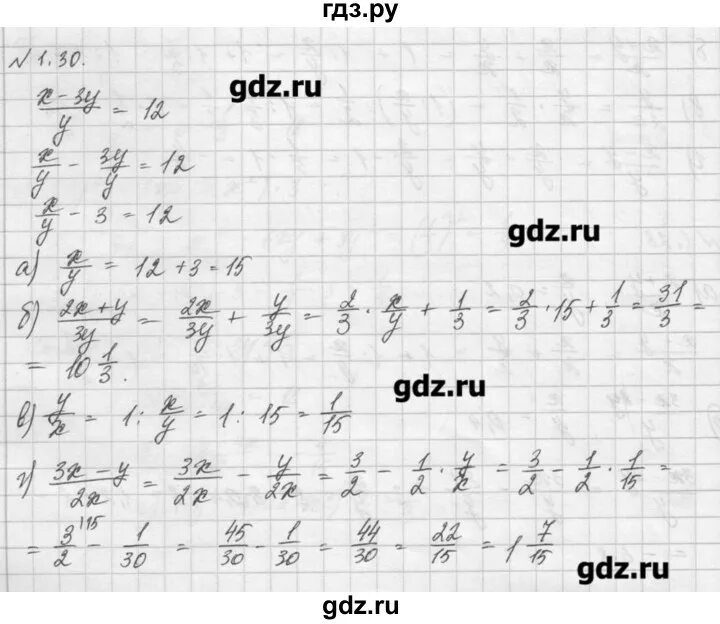 гдз.ру
№ 1.30.
gdz.ru
(x − 3y)/y = 12
x/y − 3y/y = 12
x/y − 3 = 12
gdz.ru
а) x/y = 12 + 3 = 15
б) (2x + y)/3y = 2x/3y + y/3y = 2/3 · x/y + 1/3 = 2/3 · 15 + 1/3 = 31/3 =
= 10 1/3.
gdz.ru
в) y/x = 1 : x/y = 1 : 15 = 1/15
г) (3x − y)/2x = 3x/2x − y/2x = 3/2 − 1/2 · y/x = 3/2 − 1/2 · 1/15 =
= 3/2 ^15 − 1/30 = 45/30 − 1/30 = 44/30 = 22/15 = 1 7/15
gdz.ru
gdz.ru